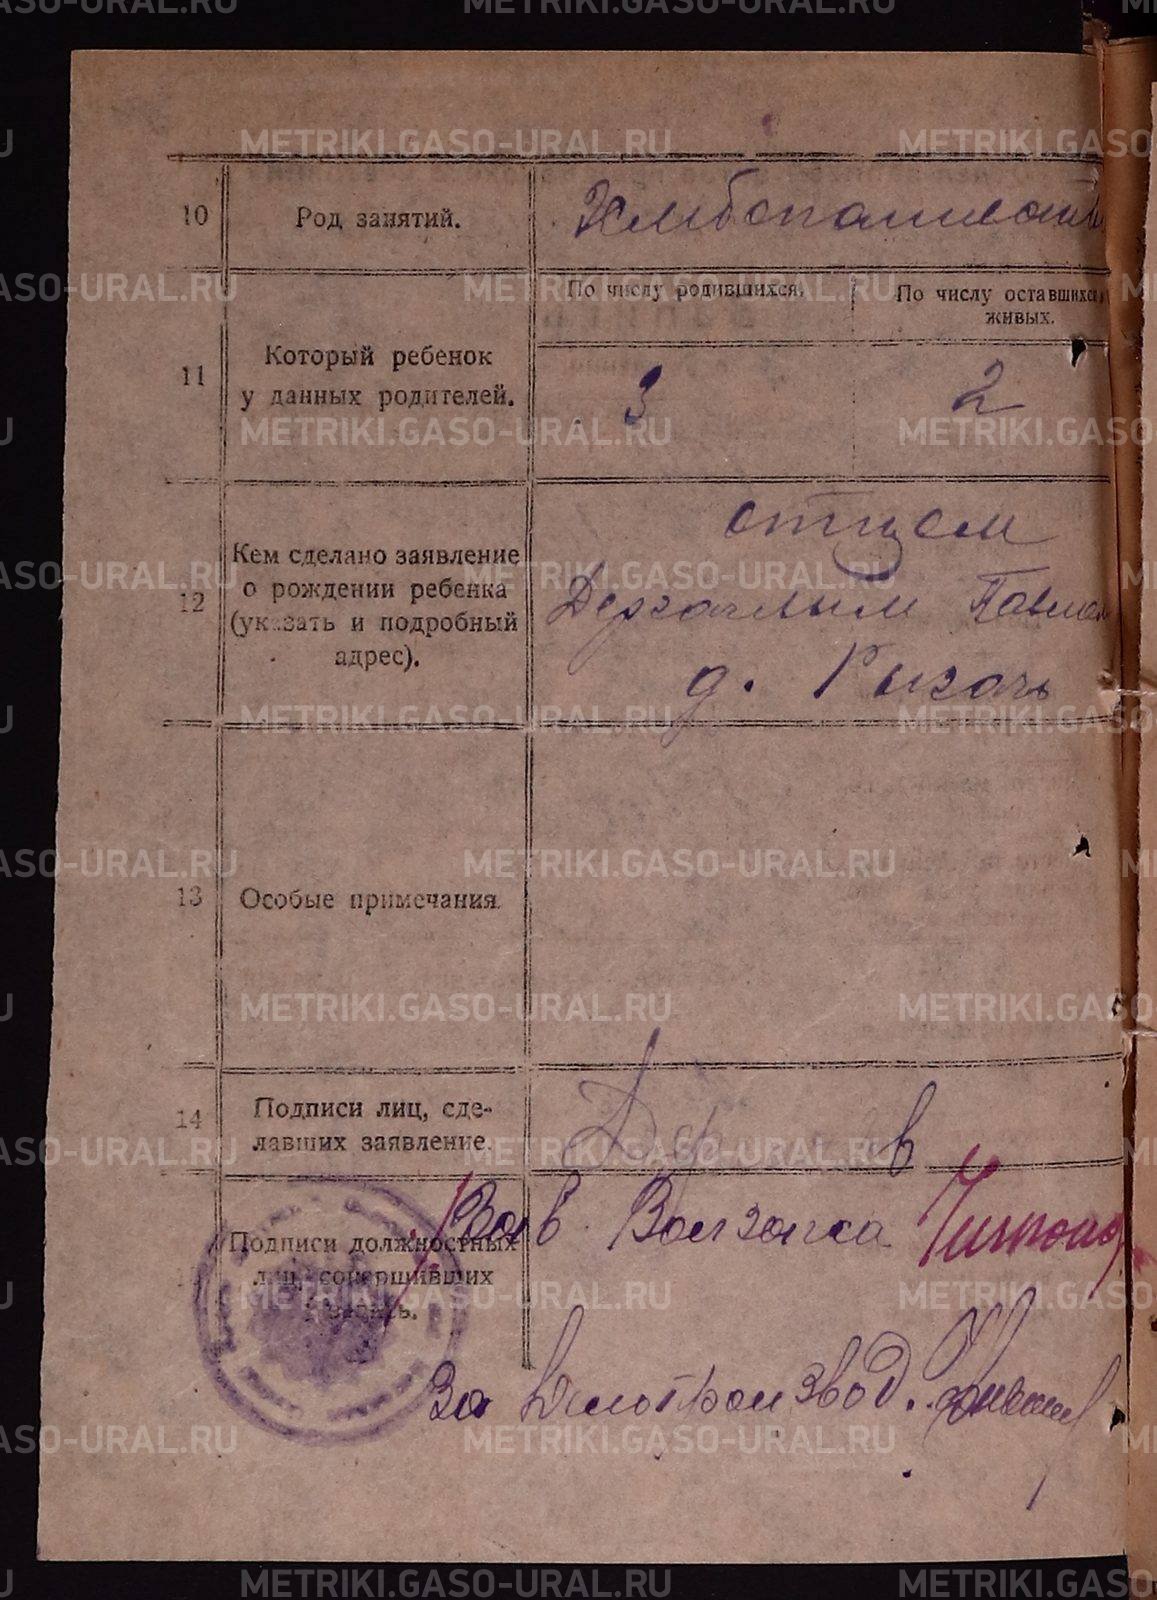 METRIKI.GASO-URAL.RU
10
Род занятий.
Хлебопашест
11
Который ребенок
у данных родителей.
По числу родившихся.
По числу оставшихся
живых.
3
2
12
Кем сделано заявление
о рождении ребенка
(указать и подробный
адрес).
отцем
Павлом
д.
13
Особые примечания.
14
Подписи лиц, сде-
лавших заявление.
Подписи должностных
лиц, совершивших
запись.
Зав. Волзагса
За Делопроизвод.